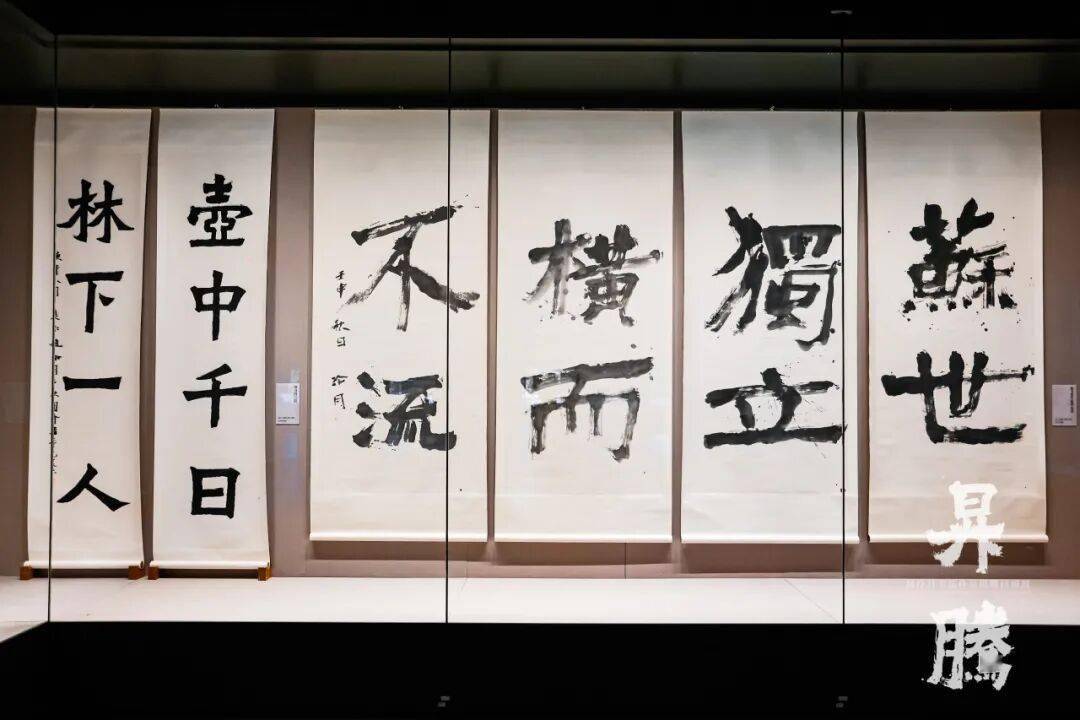 蘇世
獨立
橫而
不流
壬申 秋日
壺中千日
林下一人
昇騰